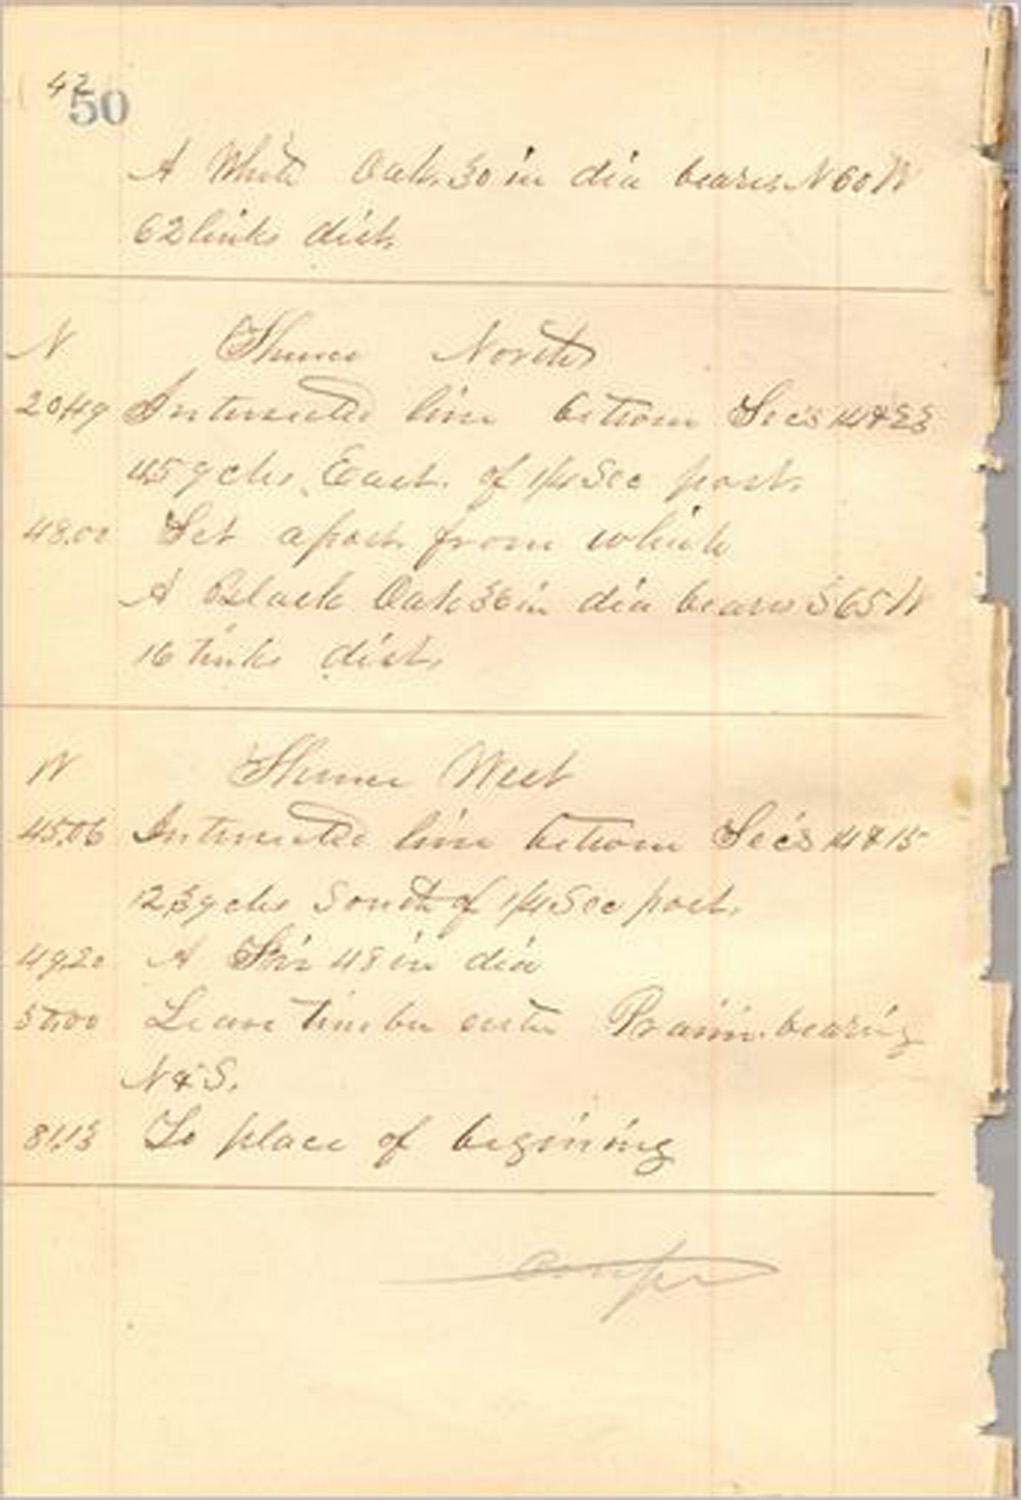 42
50
A White Oak 30 in dia bears N 60 W
62 links dist.
N Thence North
20.49 Intersected line between Sec's 14 & 23
4.59 chs. East. of 1/4 Sec post.
48.00 Set a post from which
A Black Oak 36 in dia bears S 65 W
16 links dist.
W Thence West
45.06 Intersected line between Sec's 14 & 15
12.39 chs South of 1/4 Sec post.
49.20 A Fir 48 in dia
Leave timber enter Prairie bearing
N & S.
81.13 To place of begining